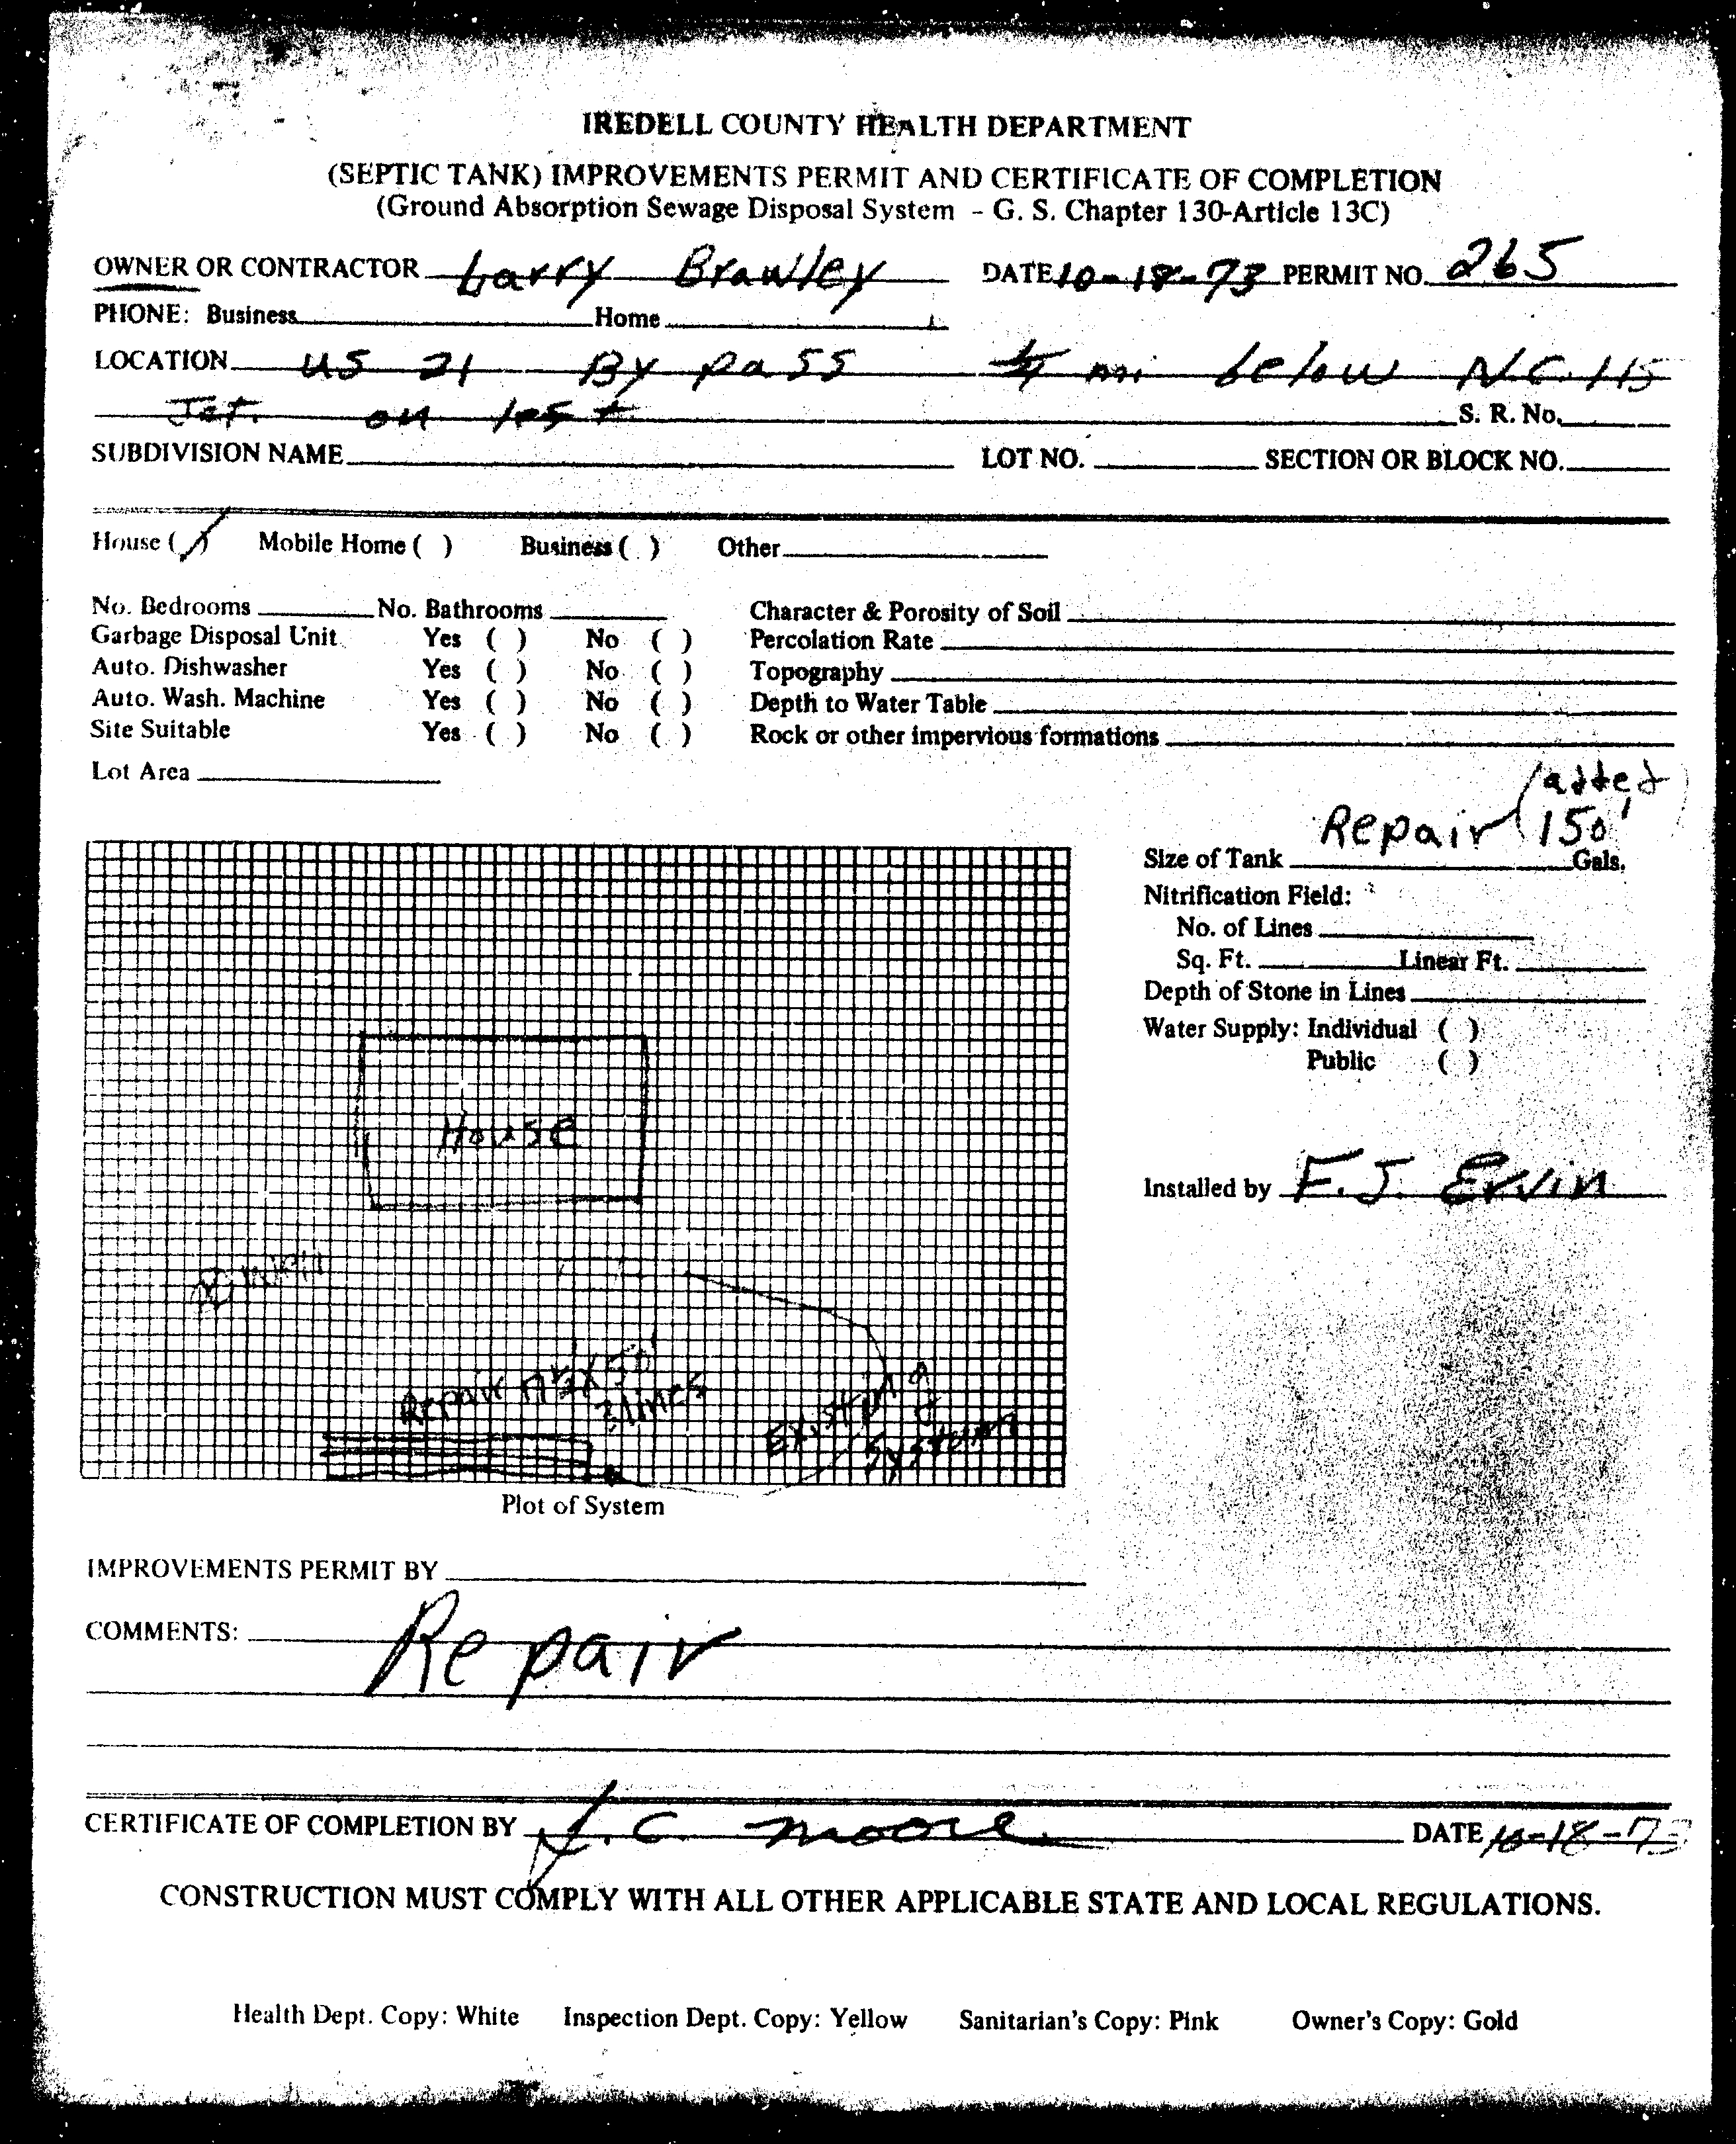 IREDELL COUNTY HEALTH DEPARTMENT
(SEPTIC TANK) IMPROVEMENTS PERMIT AND CERTIFICATE OF COMPLETION
(Ground Absorption Sewage Disposal System - G. S. Chapter 130-Article 13C)
OWNER OR CONTRACTOR Larry Brawley DATE 10-18-73 PERMIT NO. 265
PHONE: Business Home
LOCATION US 21 By pass 1/4 mi below N.C. 115
Jct. on lest
S. R. No.
SUBDIVISION NAME LOT NO. SECTION OR BLOCK NO.
House (✓) Mobile Home ( ) Business ( ) Other
No. Bedrooms No. Bathrooms Character & Porosity of Soil
Garbage Disposal Unit Yes ( ) No ( ) Percolation Rate
Auto. Dishwasher Yes ( ) No ( ) Topography
Auto. Wash. Machine Yes ( ) No ( ) Depth to Water Table
Site Suitable Yes ( ) No ( ) Rock or other impervious formations
Lot Area
(added
Repair 150'
Size of Tank Gals.
Nitrification Field:
No. of Lines
Sq. Ft. Linear Ft.
Depth of Stone in Lines
Water Supply: Individual ( )
Public ( )
House
Installed by F.J. Ervin
Repair X 50'
3 lines
Existing
System
Plot of System
IMPROVEMENTS PERMIT BY
COMMENTS: Repair
CERTIFICATE OF COMPLETION BY J. C. Moore DATE 10-18-73
CONSTRUCTION MUST COMPLY WITH ALL OTHER APPLICABLE STATE AND LOCAL REGULATIONS.
Health Dept. Copy: White Inspection Dept. Copy: Yellow Sanitarian's Copy: Pink Owner's Copy: Gold